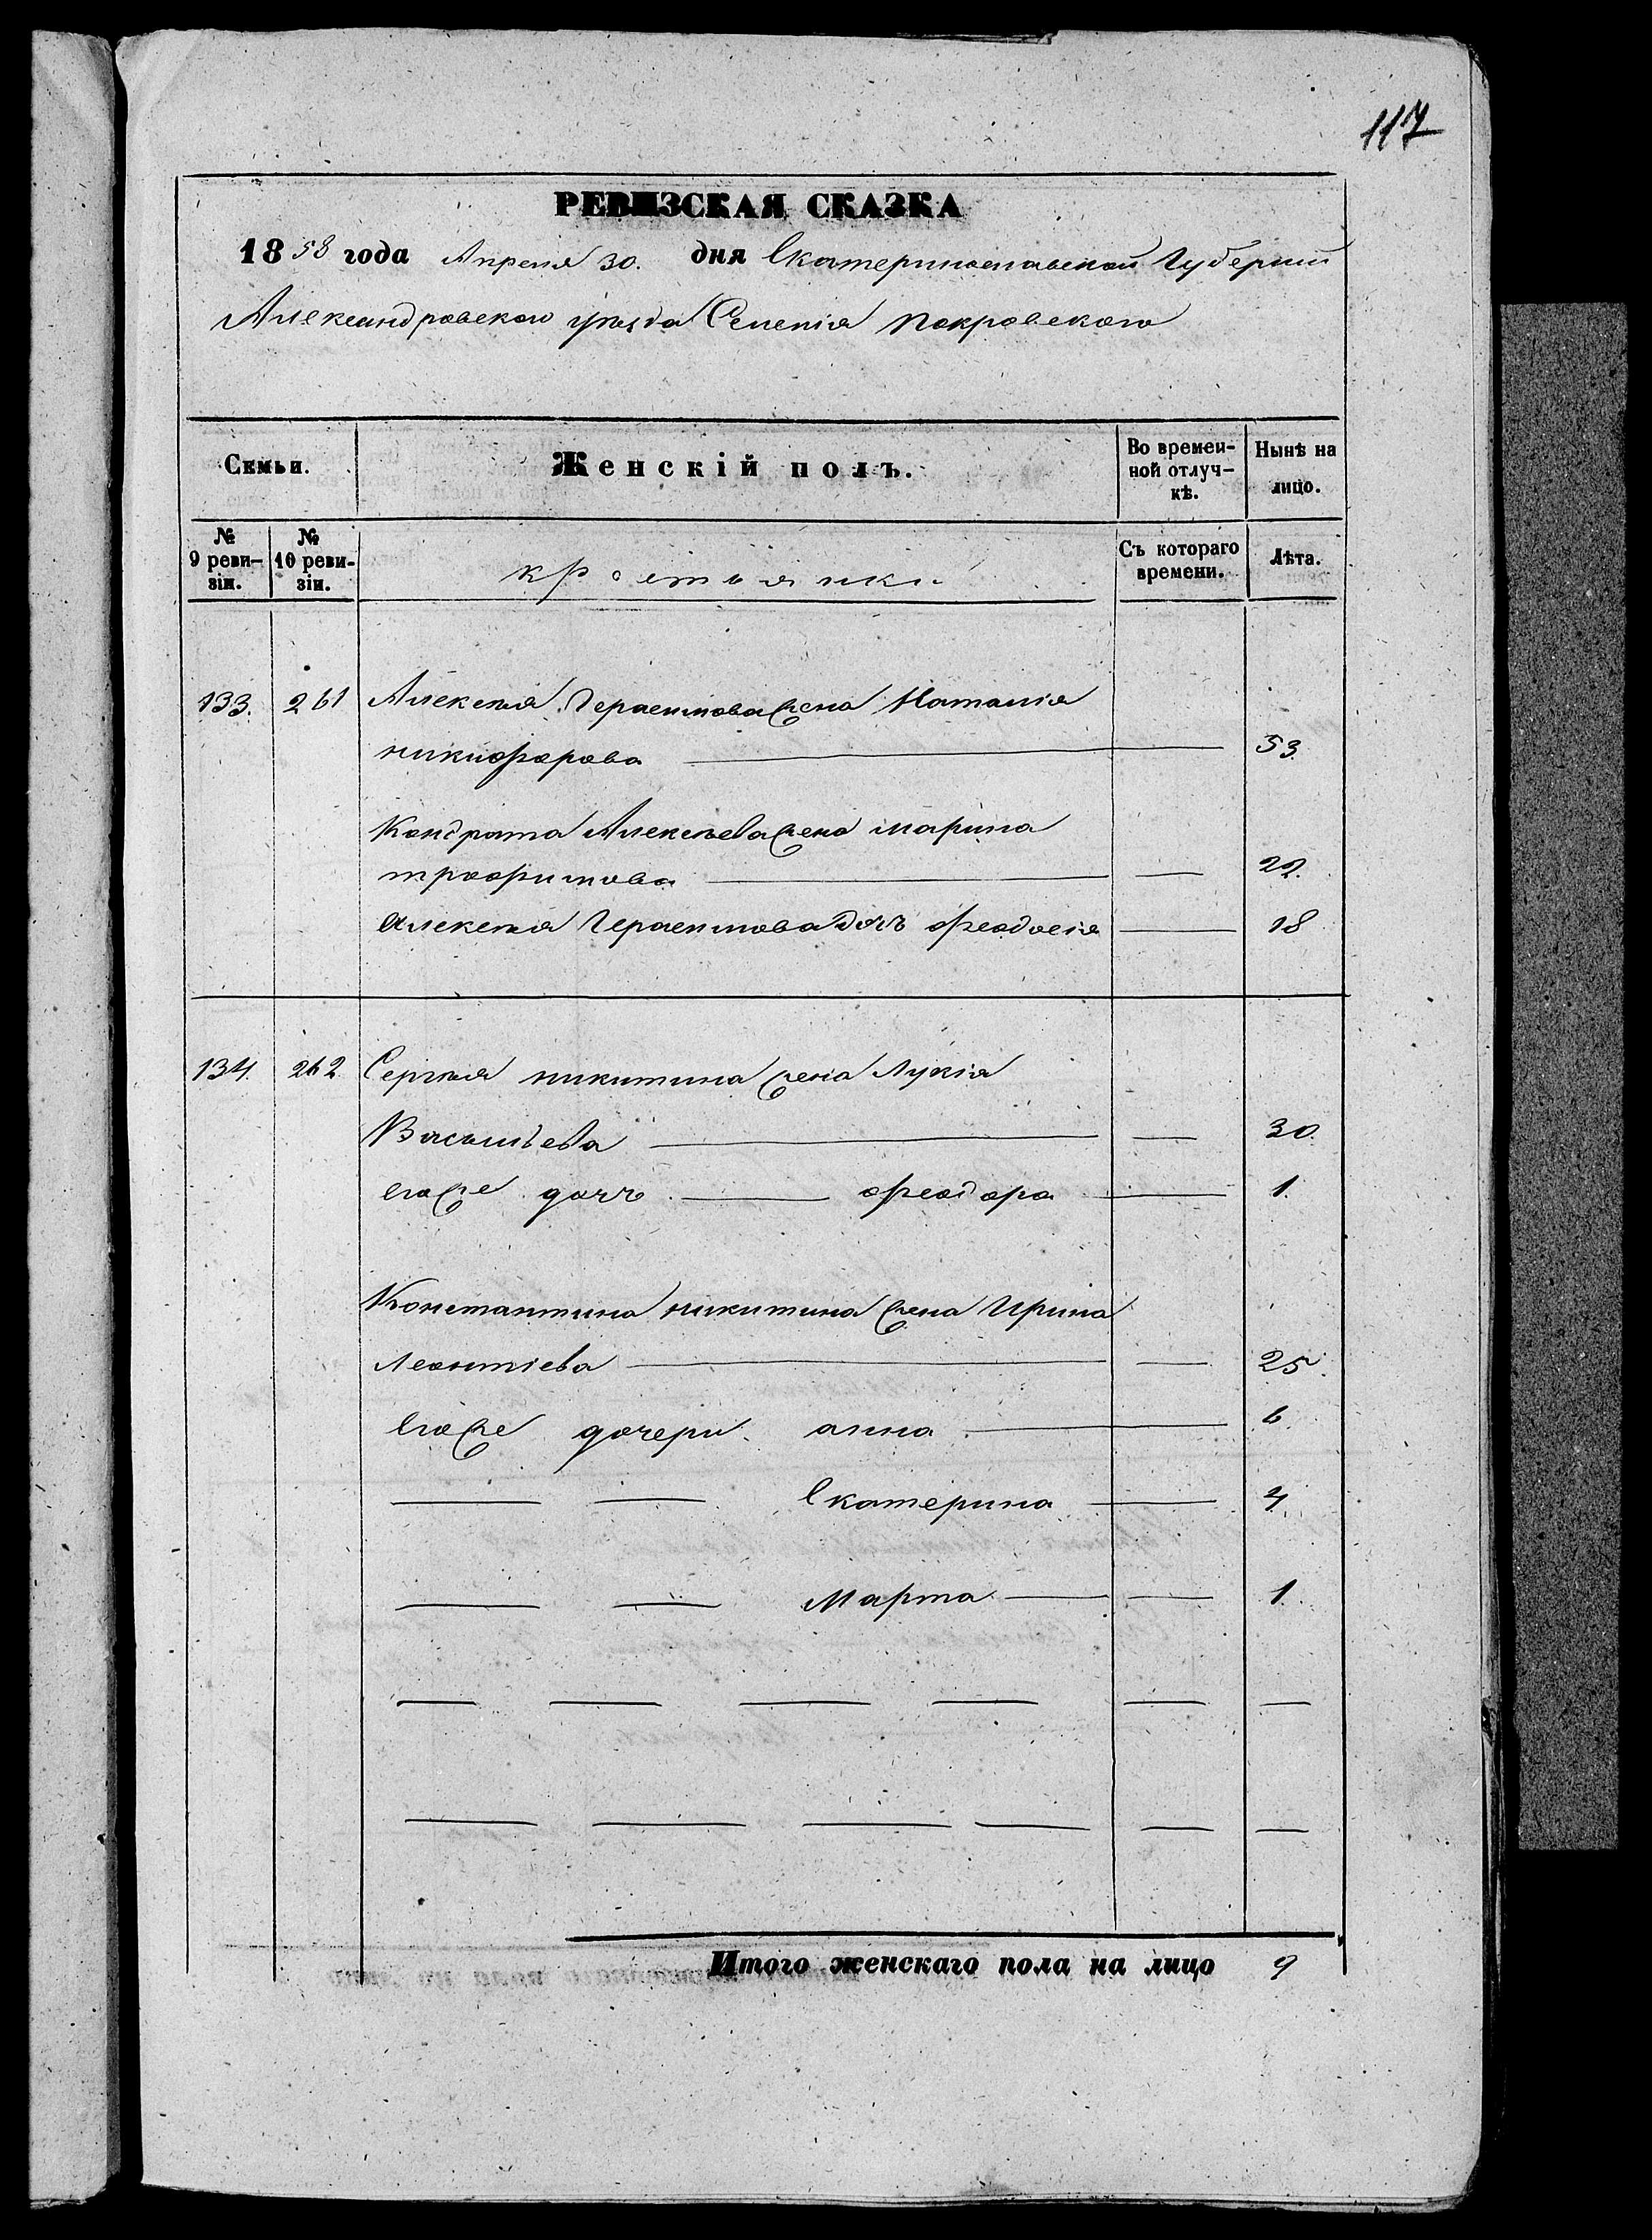 117
РЕВИЗСКАЯ СКАЗКА
1858 года Апреля 30. дня Екатеринославской Губернии
Александровского уѣзда Селенія Покровского
Семьи.
Женскій полъ.
Во времен-
ной отлуч-
кѣ.
Нынѣ на
лицо.
№
9 реви-
зіи.
№
10 реви-
зіи.
крестьянки
Съ котораго
времени.
Лѣта.
133. 261 Алексѣя Герасимова жена Наталія
никифорова 53.
Кондрата Алексѣева жена марина
трофимова 22.
Алексѣя Герасимова дочь феодосія 18
134. 262. Сергѣя никитина жена Лукія
Васильева 30.
егоже дочь феодора 1.
Константина никитина жена Ирина
Леонтіева 25.
егоже дочери анна 6.
Екатерина 4.
Марта 1.
Итого женскаго пола на лицо 9